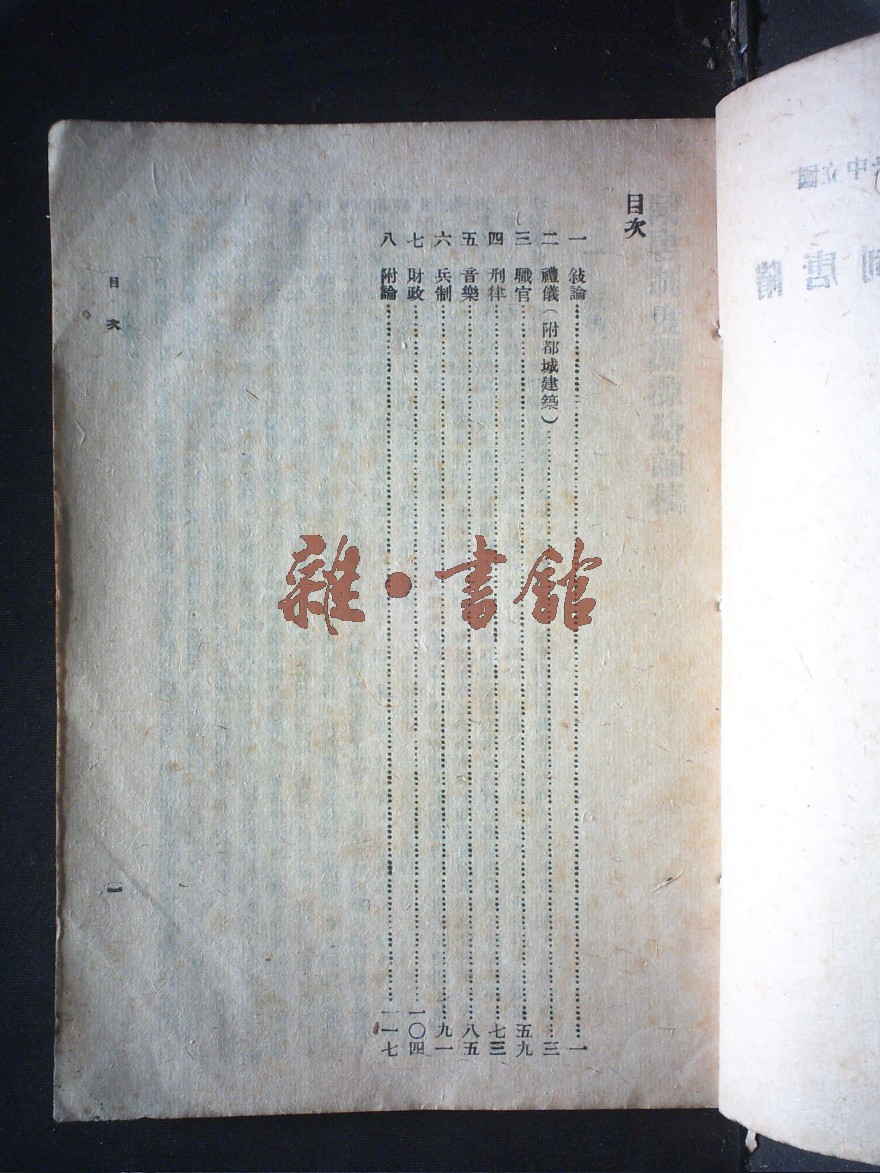 目次
一 敍論 一
二 禮儀(附都城建築) 三
三 職官 五九
四 刑律 七三
五 音樂 八五
六 兵制 九一
七 財政 一〇四
八 附論 一一七
目次
一
雜·書館